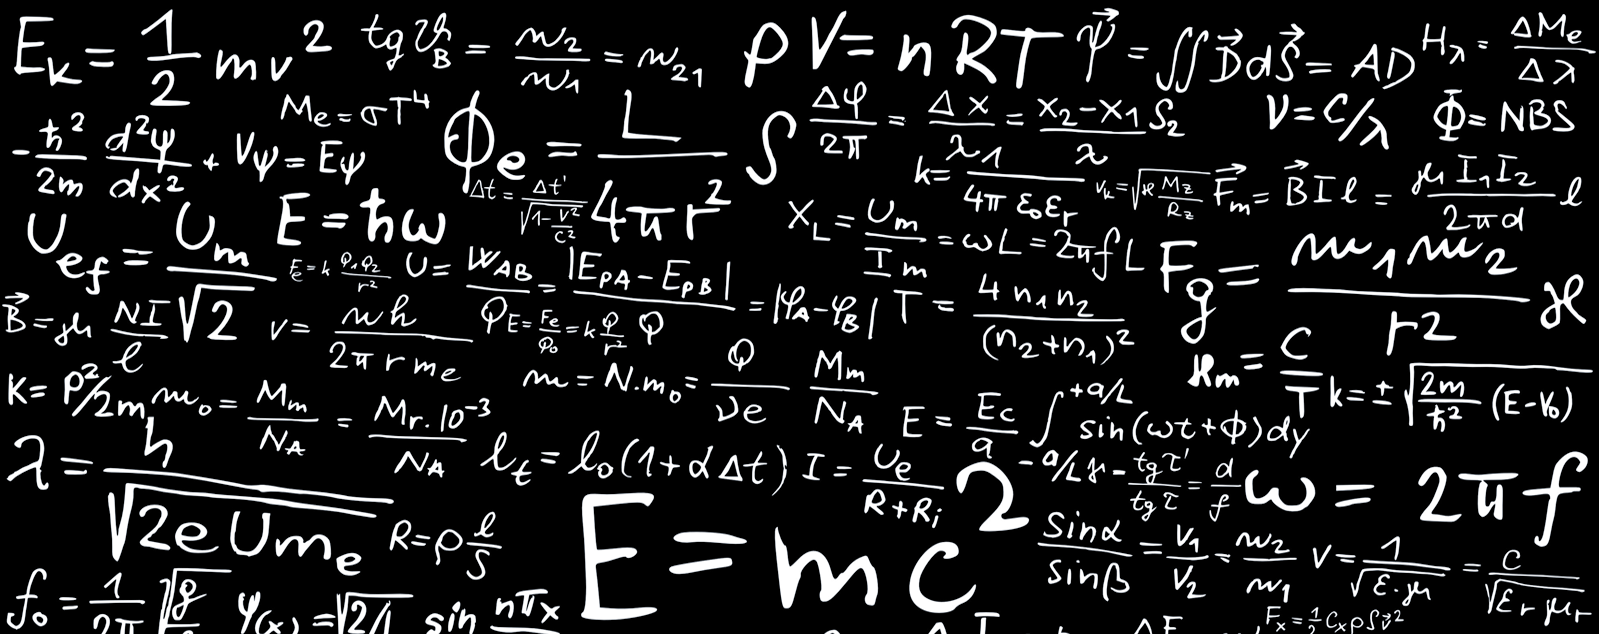 E_k = 1/2 mv²
tgϑ_B = n₂/n₁ = n₂₁
pV = nRT
ψ⃗ = ∬D⃗dS⃗ = AD
H_λ = ΔM_e/Δλ
M_e = σT⁴
Φ_e = L/4πr²
S
Δφ/2π = Δx/λ = x₂-x₁/λ
S₂
ν = c/λ
Φ = NBS
-ħ²/2m d²ψ/dx² + Vψ = Eψ
Δt = Δt'/√1-v²/c²
k = 1/4πε₀ε_r
v_k = √ϰ M_z/R_z
F⃗_m = B⃗Il = μI₁I₂/2πd l
U_ef = U_m/√2
E = ħω
X_L = U_m/I_m = ωL = 2πfL
F_g = m₁m₂/r² ϰ
F_e = k Q₁Q₂/r²
U = W_AB/Q = |E_PA - E_PB|/Q = |φ_A - φ_B|
T = 4n₁n₂/(n₂+n₁)²
B⃗ = μ NI/l
v = nh/2πrm_e
E = F_e/Q₀ = k Q/r²
ϰ_m = C/T
k = ± √2m/ħ² (E-V₀)
K = p²/2m
m₀ = M_m/N_A = M_r.10⁻³/N_A
m = N.m₀ = Q/νe M_m/N_A
E = E_c/a ∫ +a/L -a/L sin(ωt+ϕ)dy
λ = h/√2eUm_e
l_t = l₀(1+αΔt)
I = U_e/R+R_i
γ = tgτ'/tgτ = d/f
ω = 2πf
R = ρ l/S
E = mc²
sinα/sinβ = v₁/v₂ = n₂/n₁
v = 1/√ε.μ = c/√ε_rμ_r
f₀ = 1/2π
ψ(x) = √2/L sin nπx
F_x = 1/2 C_xρSv²